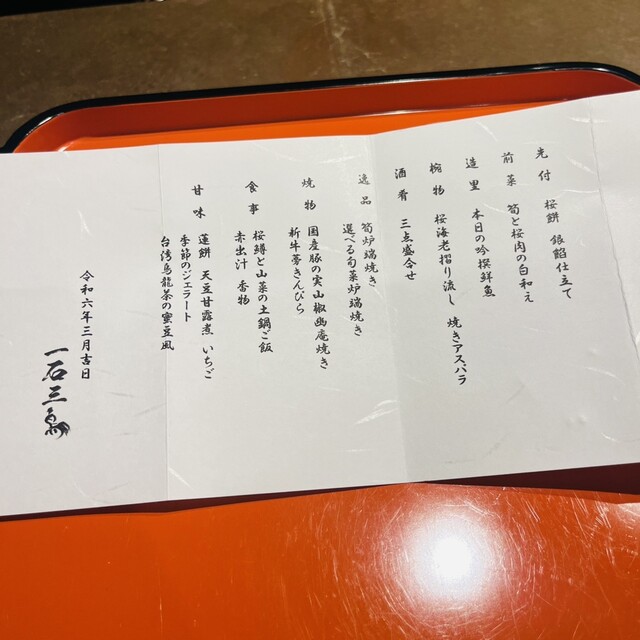 先付 桜餅 銀餡仕立て
前菜 筍と桜肉の白和え
造里 本日の吟撰鮮魚
椀物 桜海老摺り流し 焼きアスパラ
酒肴 三点盛合せ
逸品 筍炉端焼き
選べる旬菜炉端焼き
焼物 国産豚の実山椒幽庵焼き
新牛蒡きんぴら
食事 桜鱒と山菜の土鍋ご飯
赤出汁 香物
甘味 蓮餅 天豆甘露煮 いちご
季節のジェラート
台湾烏龍茶の蜜豆風
令和六年三月吉日
一石三鳥